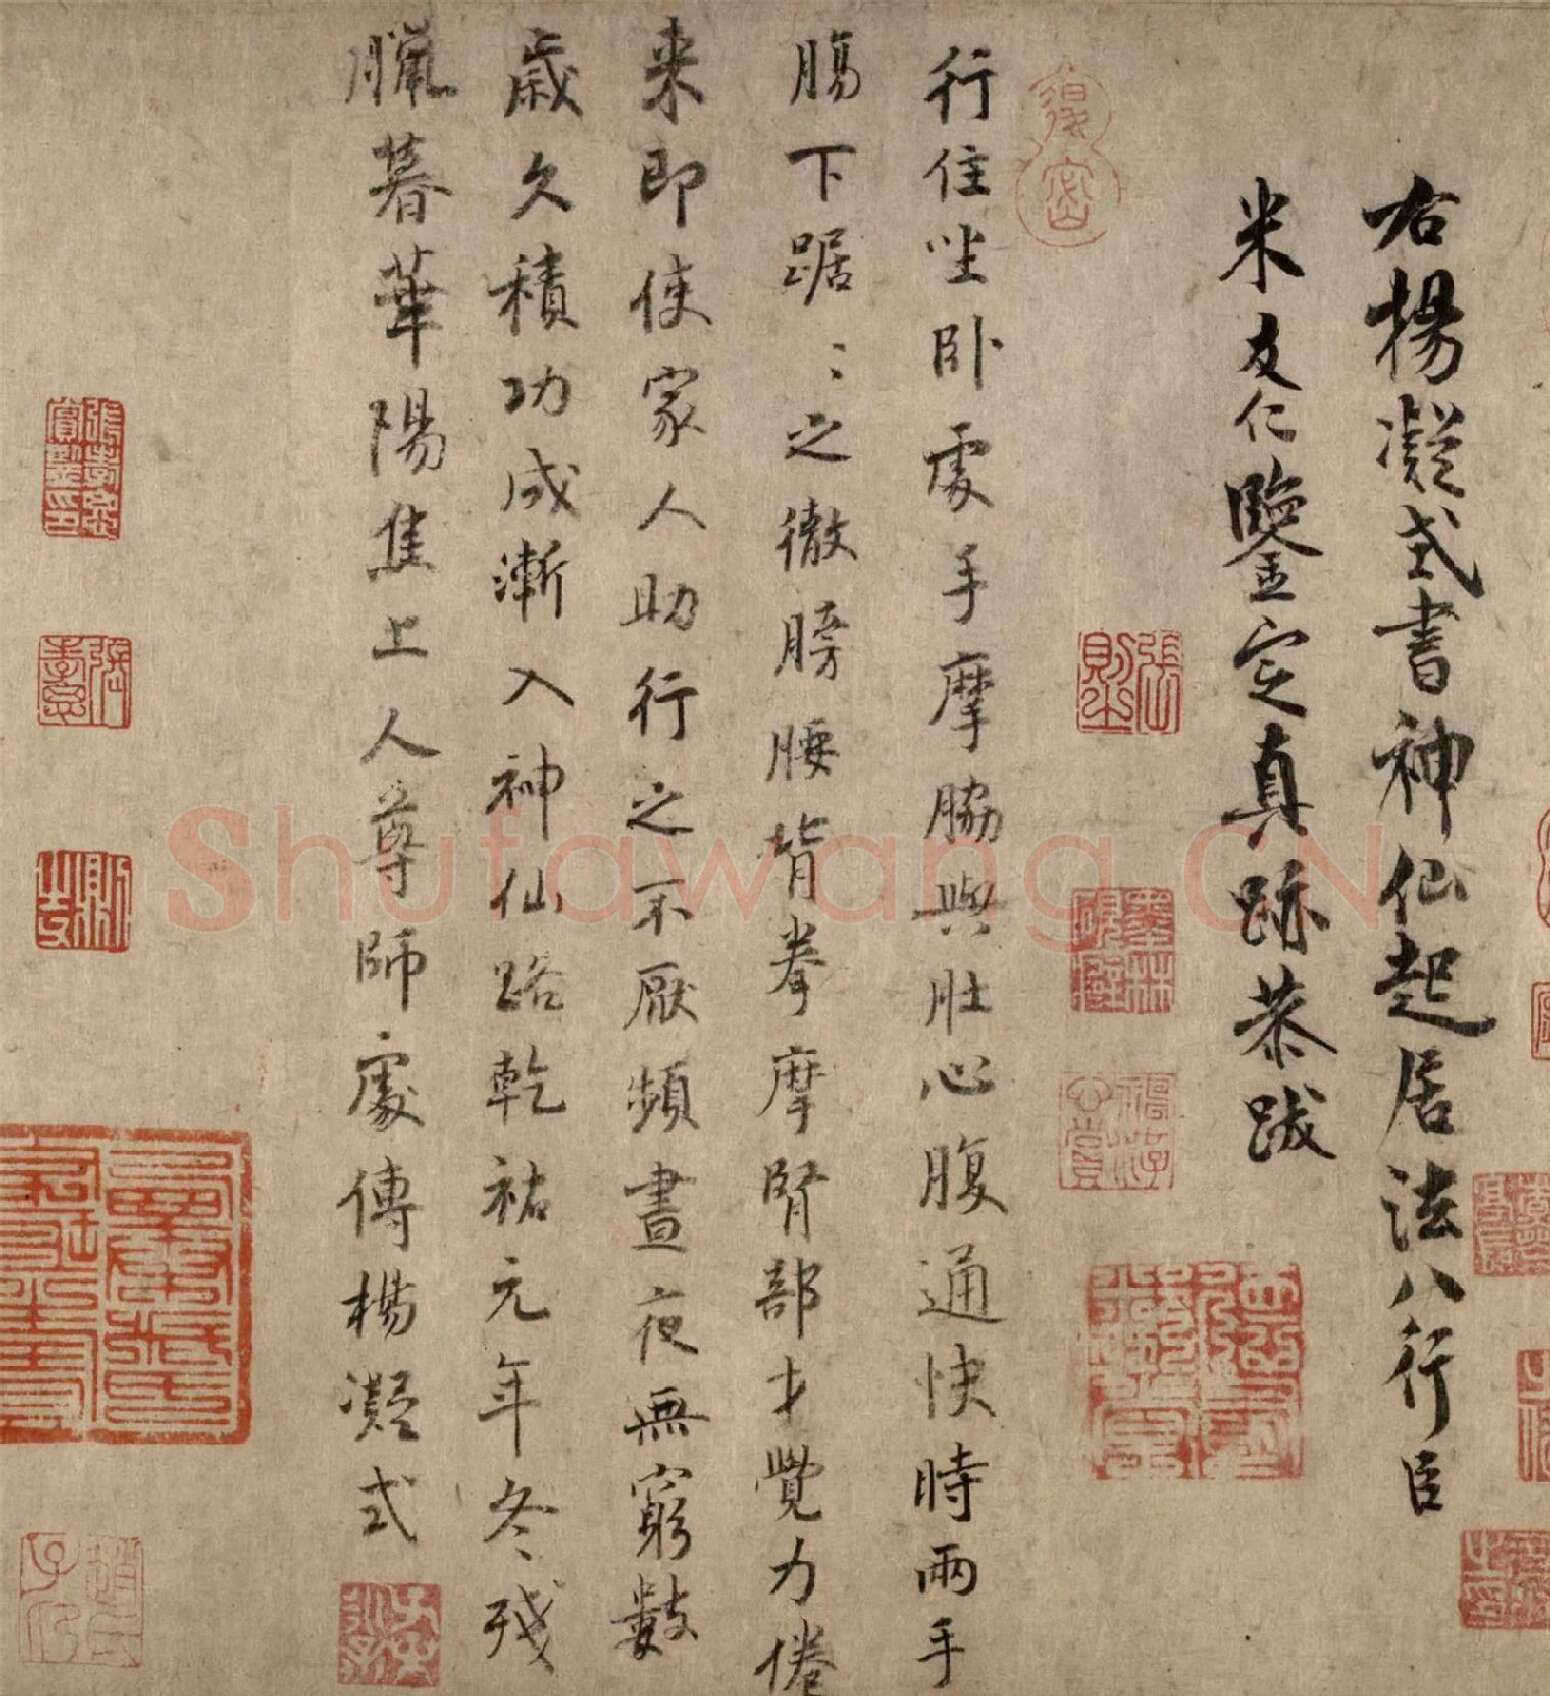 右楊凝式書神仙起居法八行臣
米友仁鑒定真跡恭跋
行住坐卧處手摩脇與肚心腹通快時兩手
腸下踞〻之徹膀腰背拳摩腎部才覺力倦
来即使家人助行之不厭頻晝夜無窮數
歲久積功成漸入神仙路乾祐元年冬殘
臘暮華陽焦上人尊師處傳楊凝式
張則之
張孝思
則之
Shufawang.CN